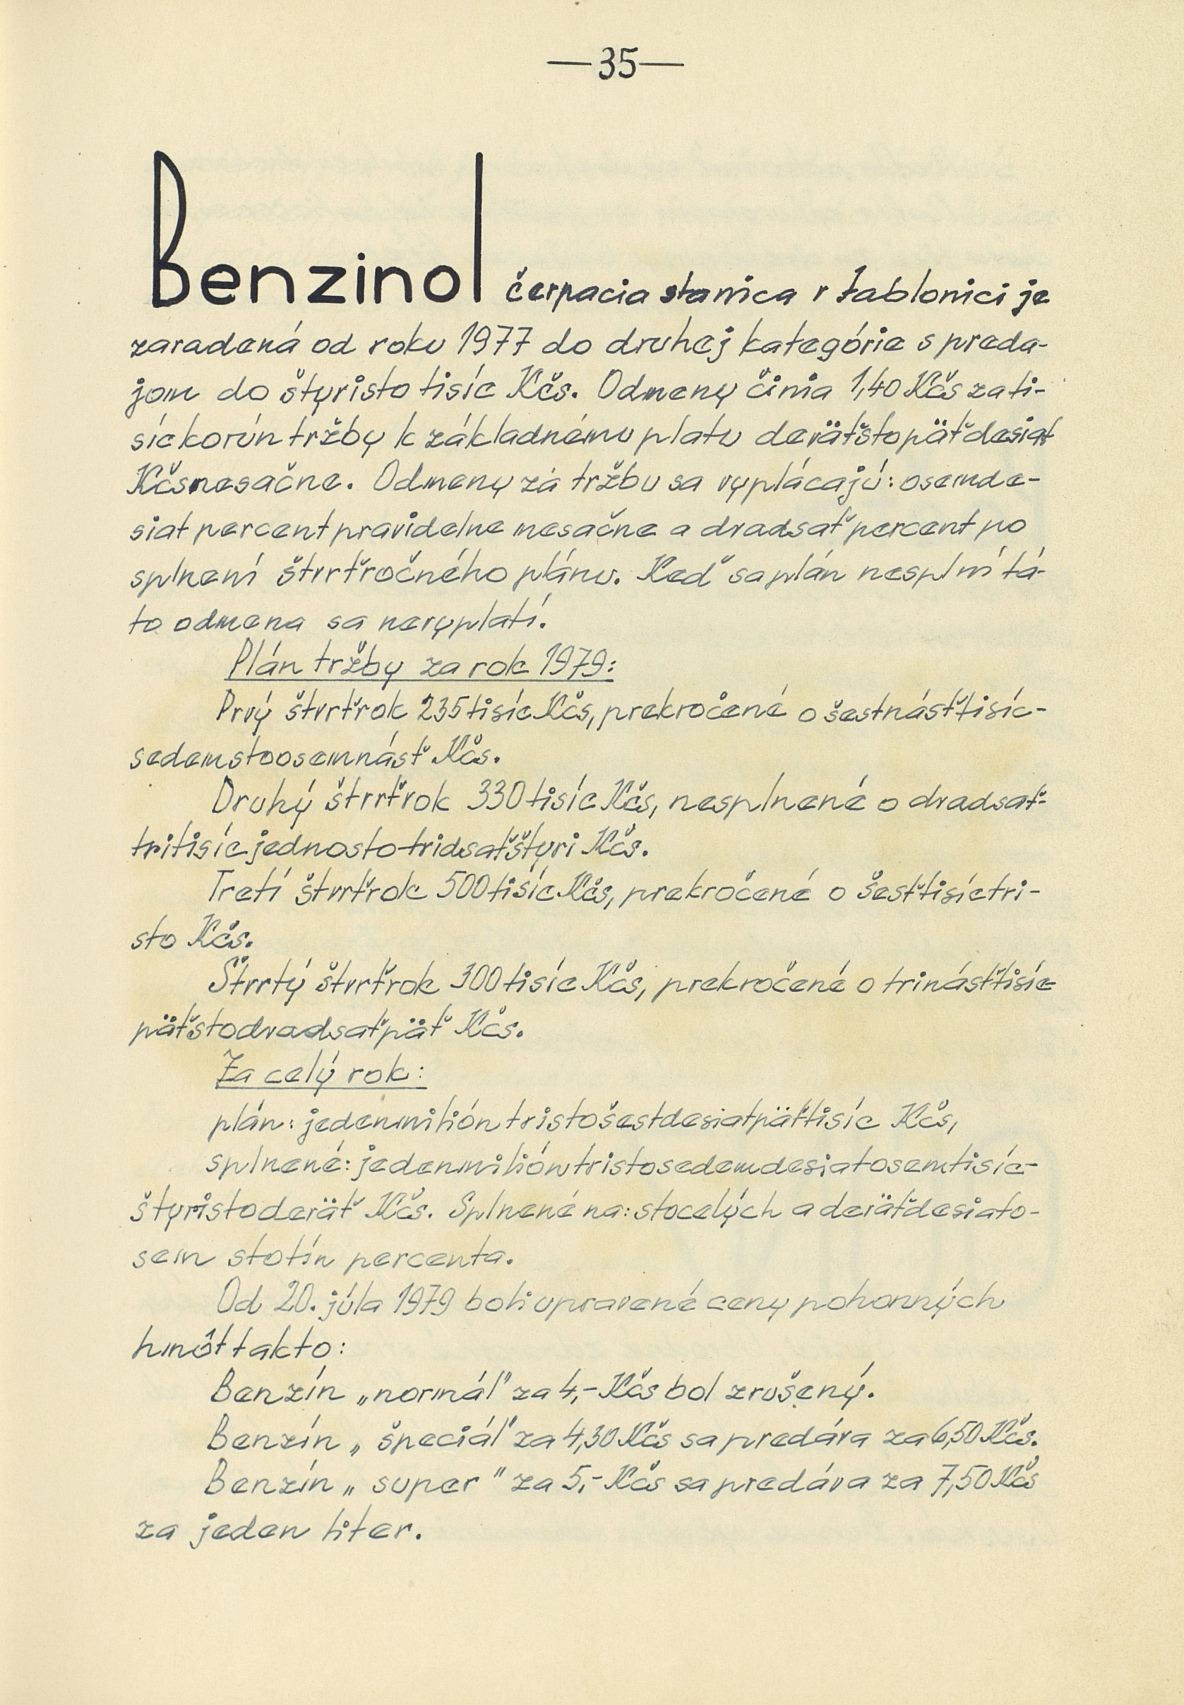 —35—
Benzinol čerpacia stanica v Jablonici je
zaradená od roku 1977 do druhej kategórie s preda-
jom do štyristo tisíc Kčs. Odmeny činia 1,40 Kčs za ti-
síc korún tržby k základnému platu deväťstopäťdesiat
Kčs mesačne. Odmeny za tržbu sa vyplácajú: osemde-
siat percent pravidelne mesačne a dvadsať percent po
splnení štvrťročného plánu. Keď sa plán nesplní tá-
to odmena sa nevyplatí.
Plán tržby za rok 1979:
Prvý štvrťrok 235 tisíc Kčs, prekročené o šestnásťtisíc-
sedemstoosemnásť Kčs.
Druhý štvrťrok 330 tisíc Kčs, nesplnené o dvadsať-
tritisíc jednostotridsaťštyri Kčs.
Tretí štvrťrok 500 tisíc Kčs, prekročené o šesťtisíctri-
sto Kčs.
Štvrtý štvrťrok 300 tisíc Kčs, prekročené o trinásťtisíc
päťstodvadsaťpäť Kčs.
Za celý rok:
plán: jedenmilión tristošestdesiatpäťtisíc Kčs,
splnené: jedenmilióntristosedemdesiatosemtisíc-
štyristodeväť Kčs. Splnené na: stocelých a deväťdesiato-
sem stotín percenta.
Od 20. júla 1979 boli upravené ceny pohonných
hmôt takto:
Benzín „normál" za 4,- Kčs bol zrušený.
Benzín „ špeciál" za 4,30 Kčs sa predáva za 6,50 Kčs.
Benzín „ super " za 5,- Kčs sa predáva za 7,50 Kčs
za jeden liter.